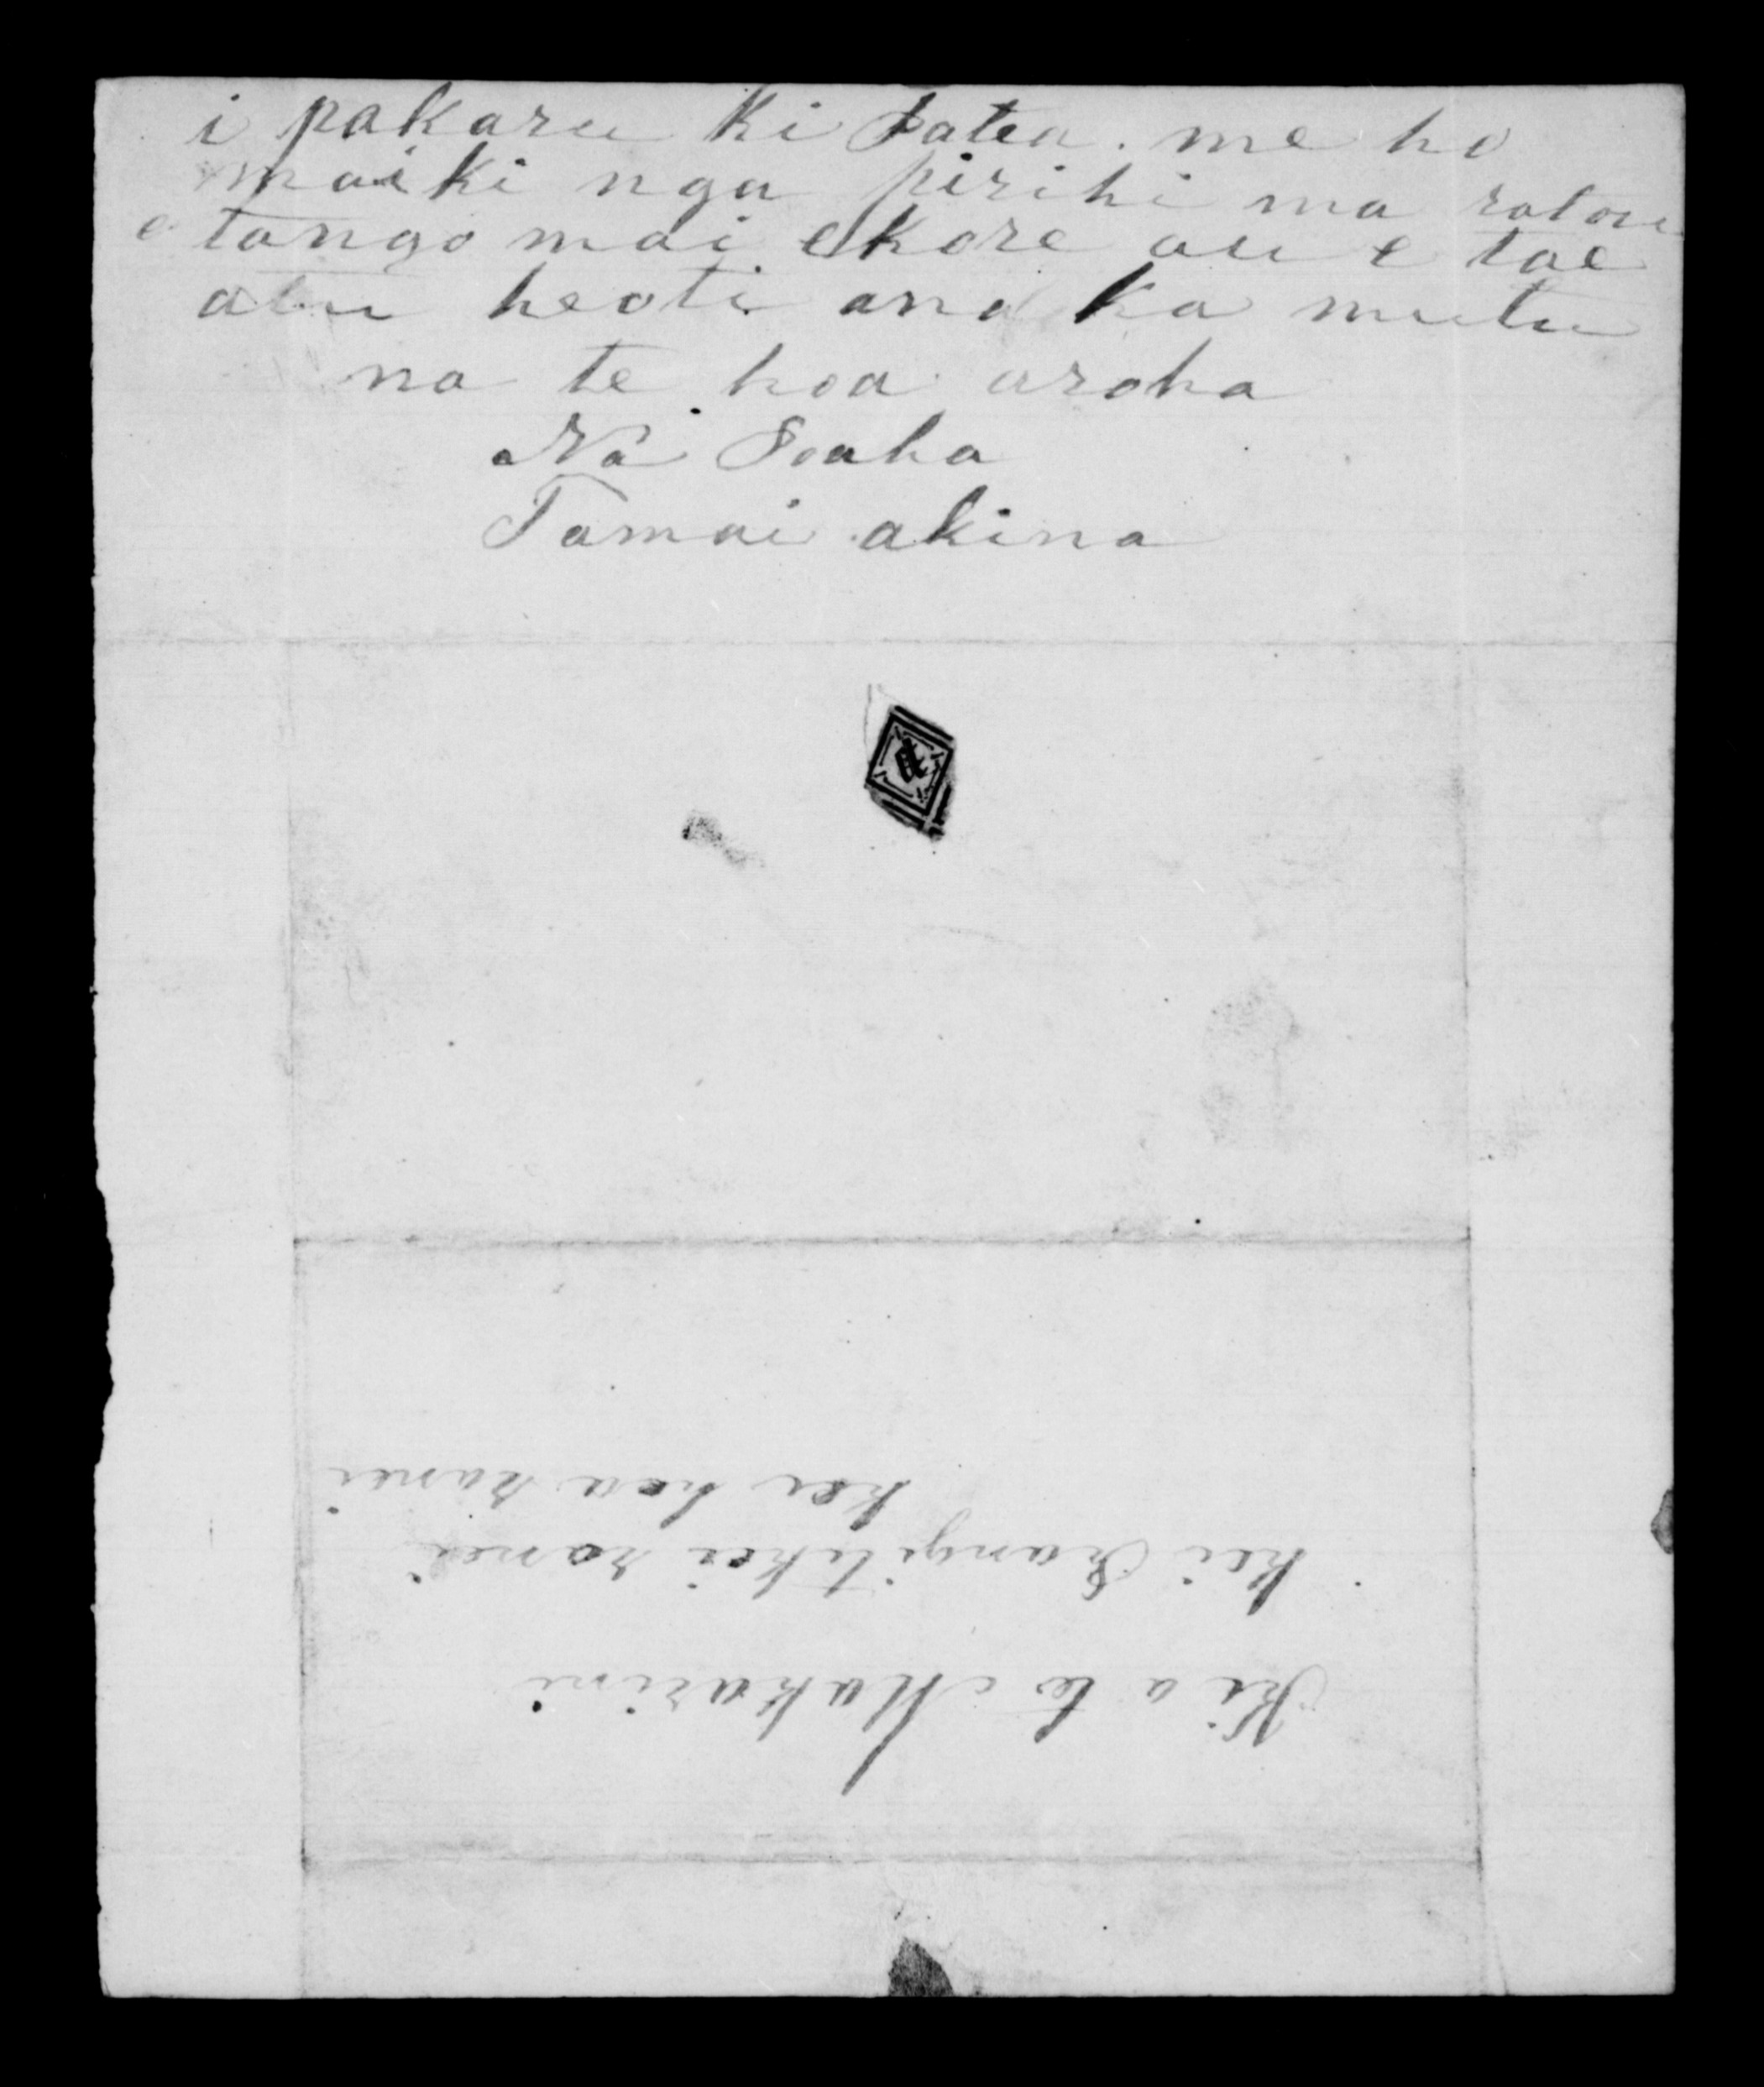 i pakaru ki Patea. me ho
mai ki nga pirihi ma ratou
e tango mai ekore au e tae
atu heoti ano ka mutu
na te hoa aroha
Na Soaha
Tamai akina
Ki a te Makarini
kei Rangitikei ranei
kei hea ranei